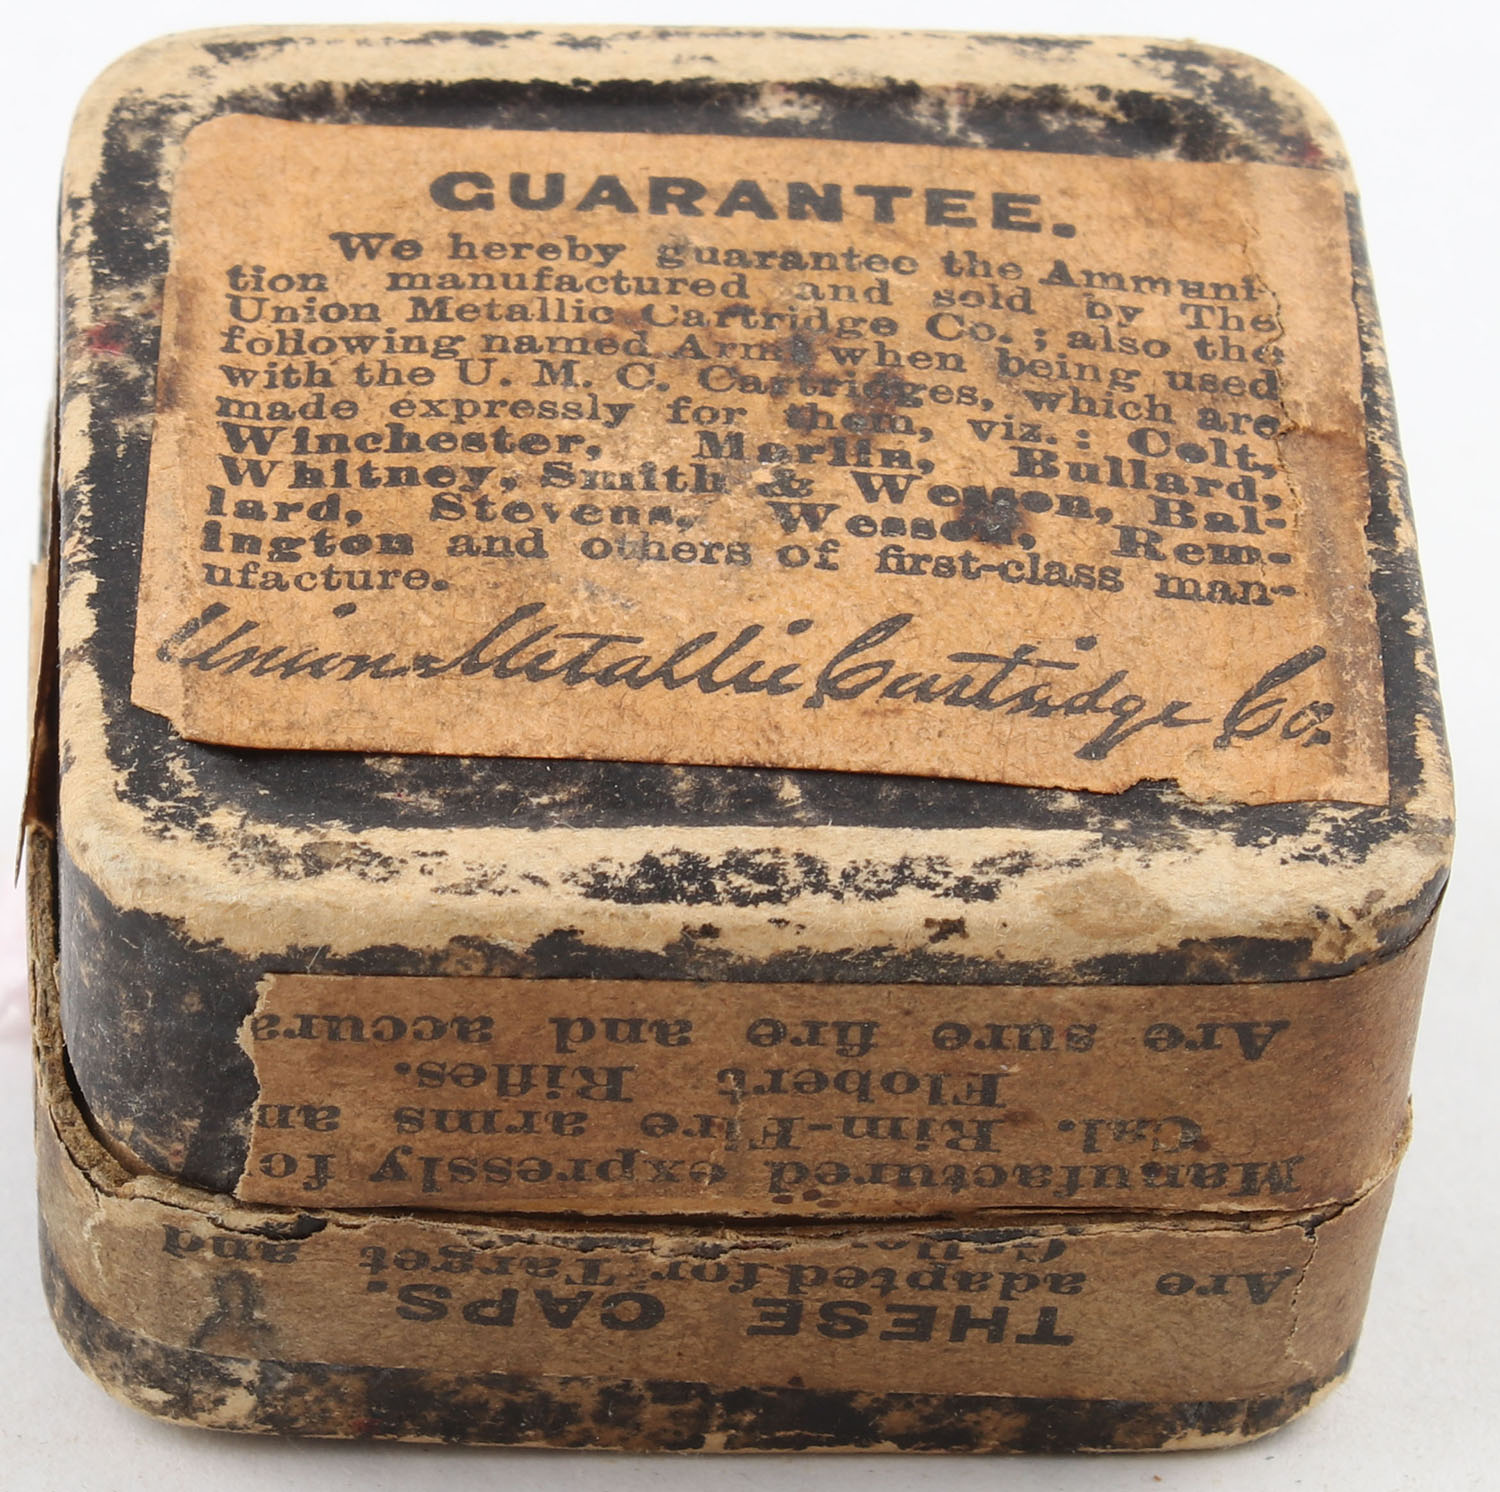 GUARANTEE.
We hereby guarantee the Ammuni-
tion manufactured and sold by The
Union Metallic Cartridge Co.; also the
following named Arms when being used
with the U. M. C. Cartridges, which are
made expressly for them, viz.: Colt,
Winchester, Marlin, Bullard,
Whitney, Smith & Wesson, Bal-
lard, Stevens, Wesson, Rem-
ington and others of first-class man-
ufacture.
Union Metallic Cartridge Co.
THESE CAPS.
Are adapted for Target and
Manufactured expressly fo
Cal. Rim-Fire arms an
Flobert Rifles.
Are sure fire and accura